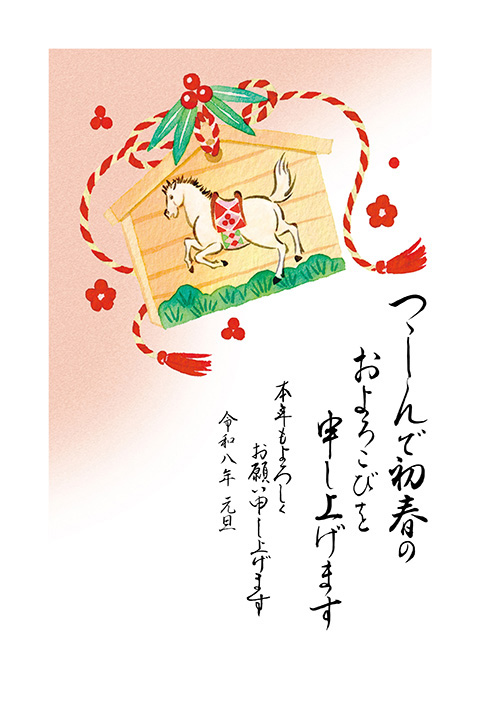 つゝしんで初春の
およろこびを
申し上げます
本年もよろしく
お願い申し上げます
令和八年 元旦